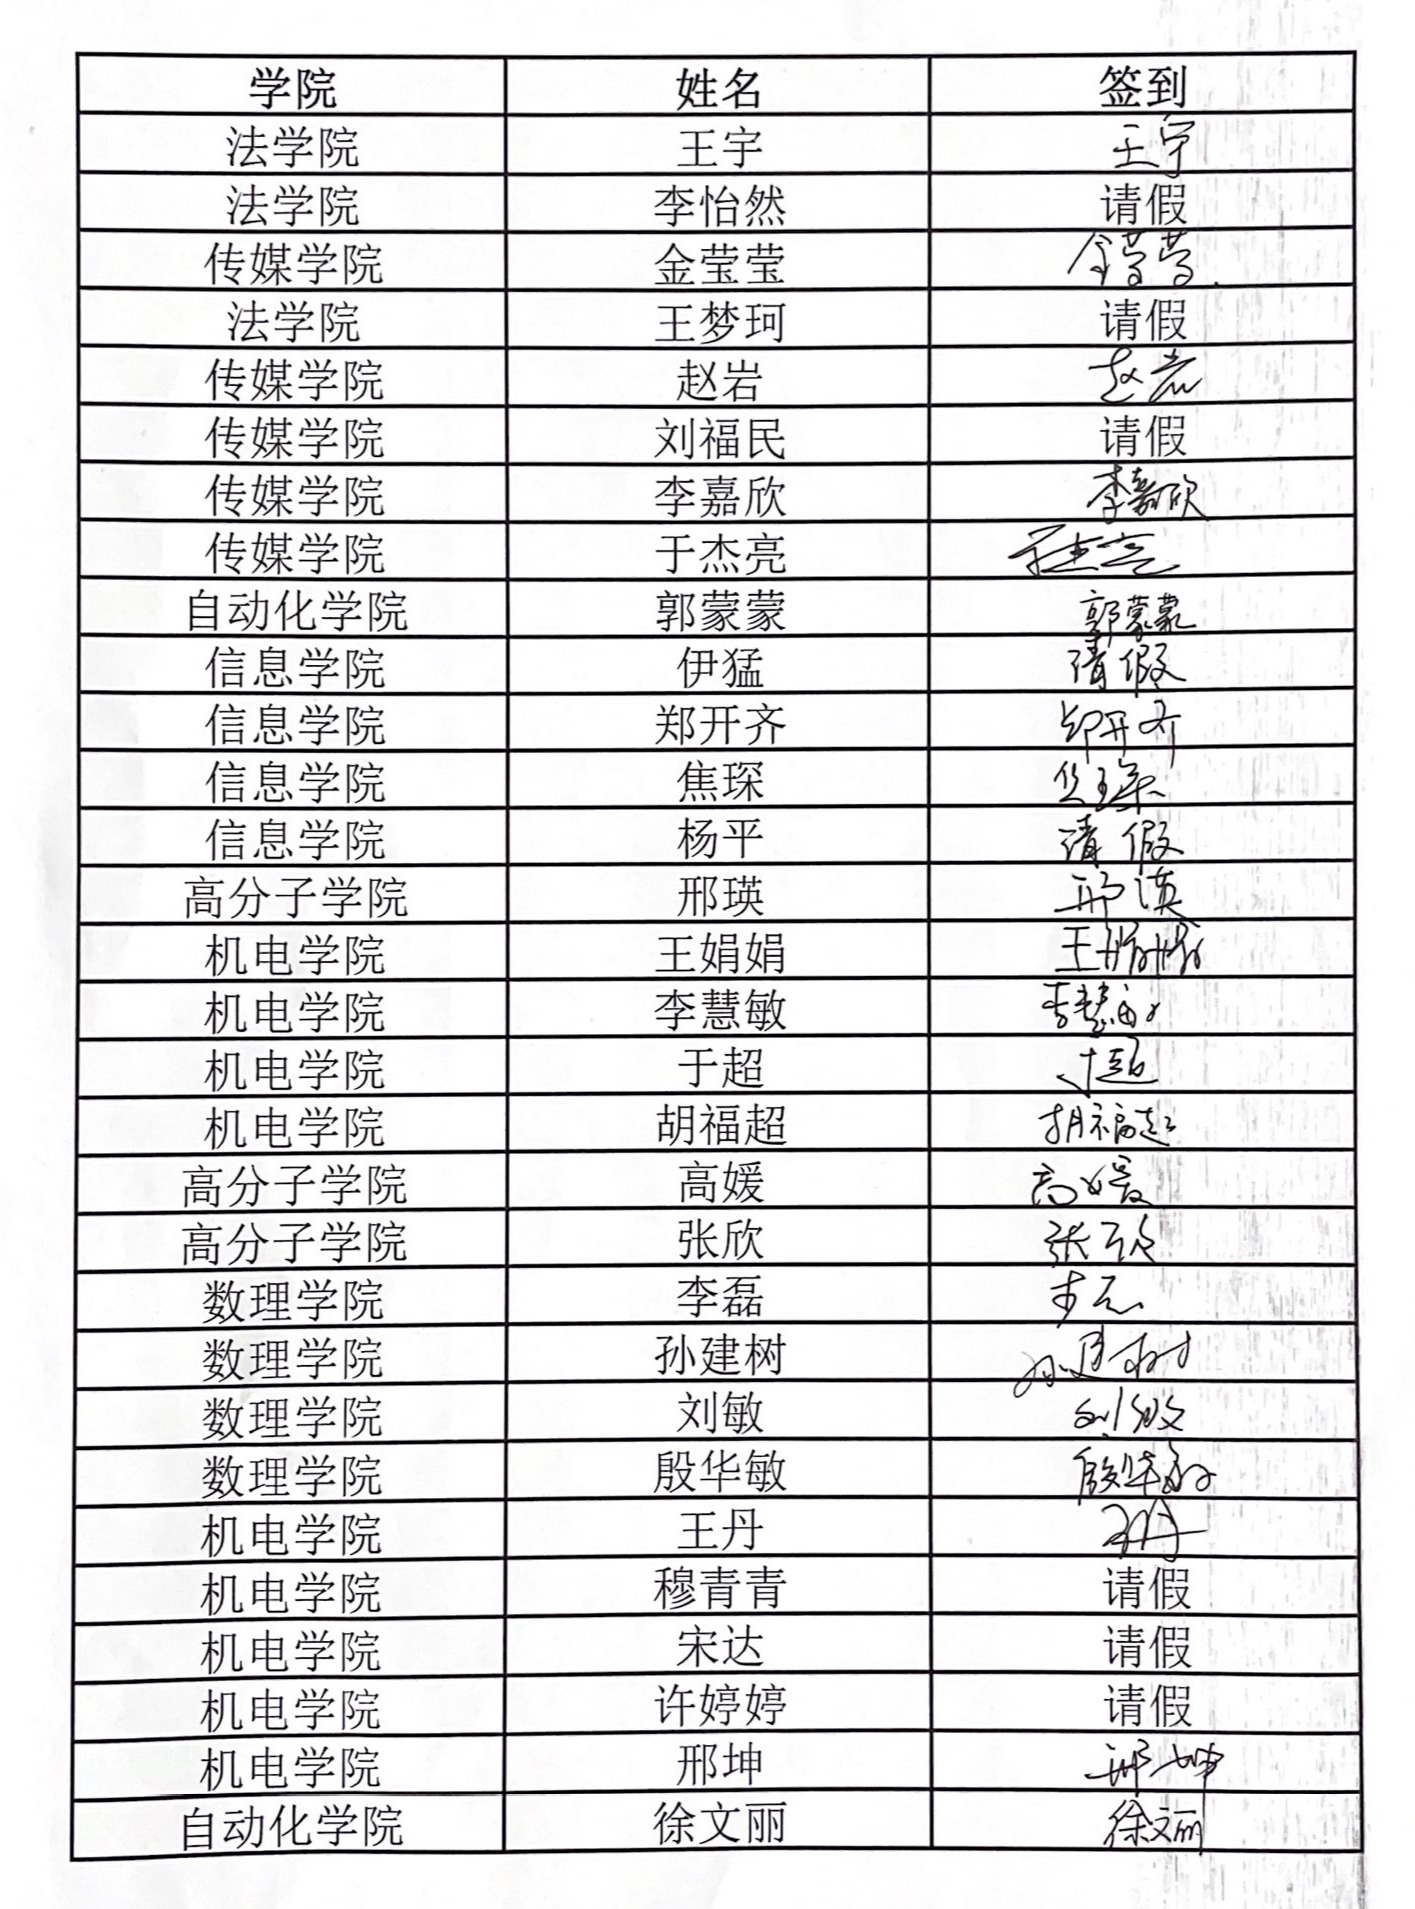 学院 姓名 签到
法学院 王宇 王宇
法学院 李怡然 请假
传媒学院 金莹莹 金莹莹
法学院 王梦珂 请假
传媒学院 赵岩 赵岩
传媒学院 刘福民 请假
传媒学院 李嘉欣 李嘉欣
传媒学院 于杰亮 于杰亮
自动化学院 郭蒙蒙 郭蒙蒙
信息学院 伊猛 请假
信息学院 郑开齐 郑开齐
信息学院 焦琛 焦琛
信息学院 杨平 请假
高分子学院 邢瑛 邢瑛
机电学院 王娟娟 王娟娟
机电学院 李慧敏 李慧敏
机电学院 于超 于超
机电学院 胡福超 胡福超
高分子学院 高媛 高媛
高分子学院 张欣 张欣
数理学院 李磊 李磊
数理学院 孙建树 孙建树
数理学院 刘敏 刘敏
数理学院 殷华敏 殷华敏
机电学院 王丹 王丹
机电学院 穆青青 请假
机电学院 宋达 请假
机电学院 许婷婷 请假
机电学院 邢坤 邢坤
自动化学院 徐文丽 徐文丽